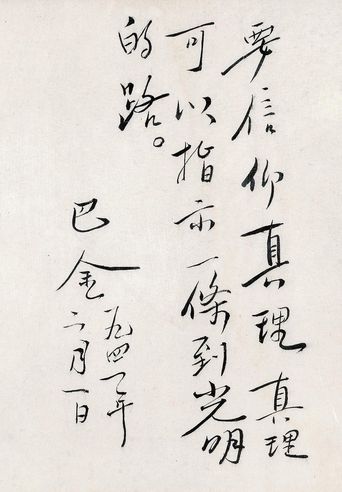 要信仰真理 真理
可以指示一條到光明
的路。
巴金 一九四一年
六月一日